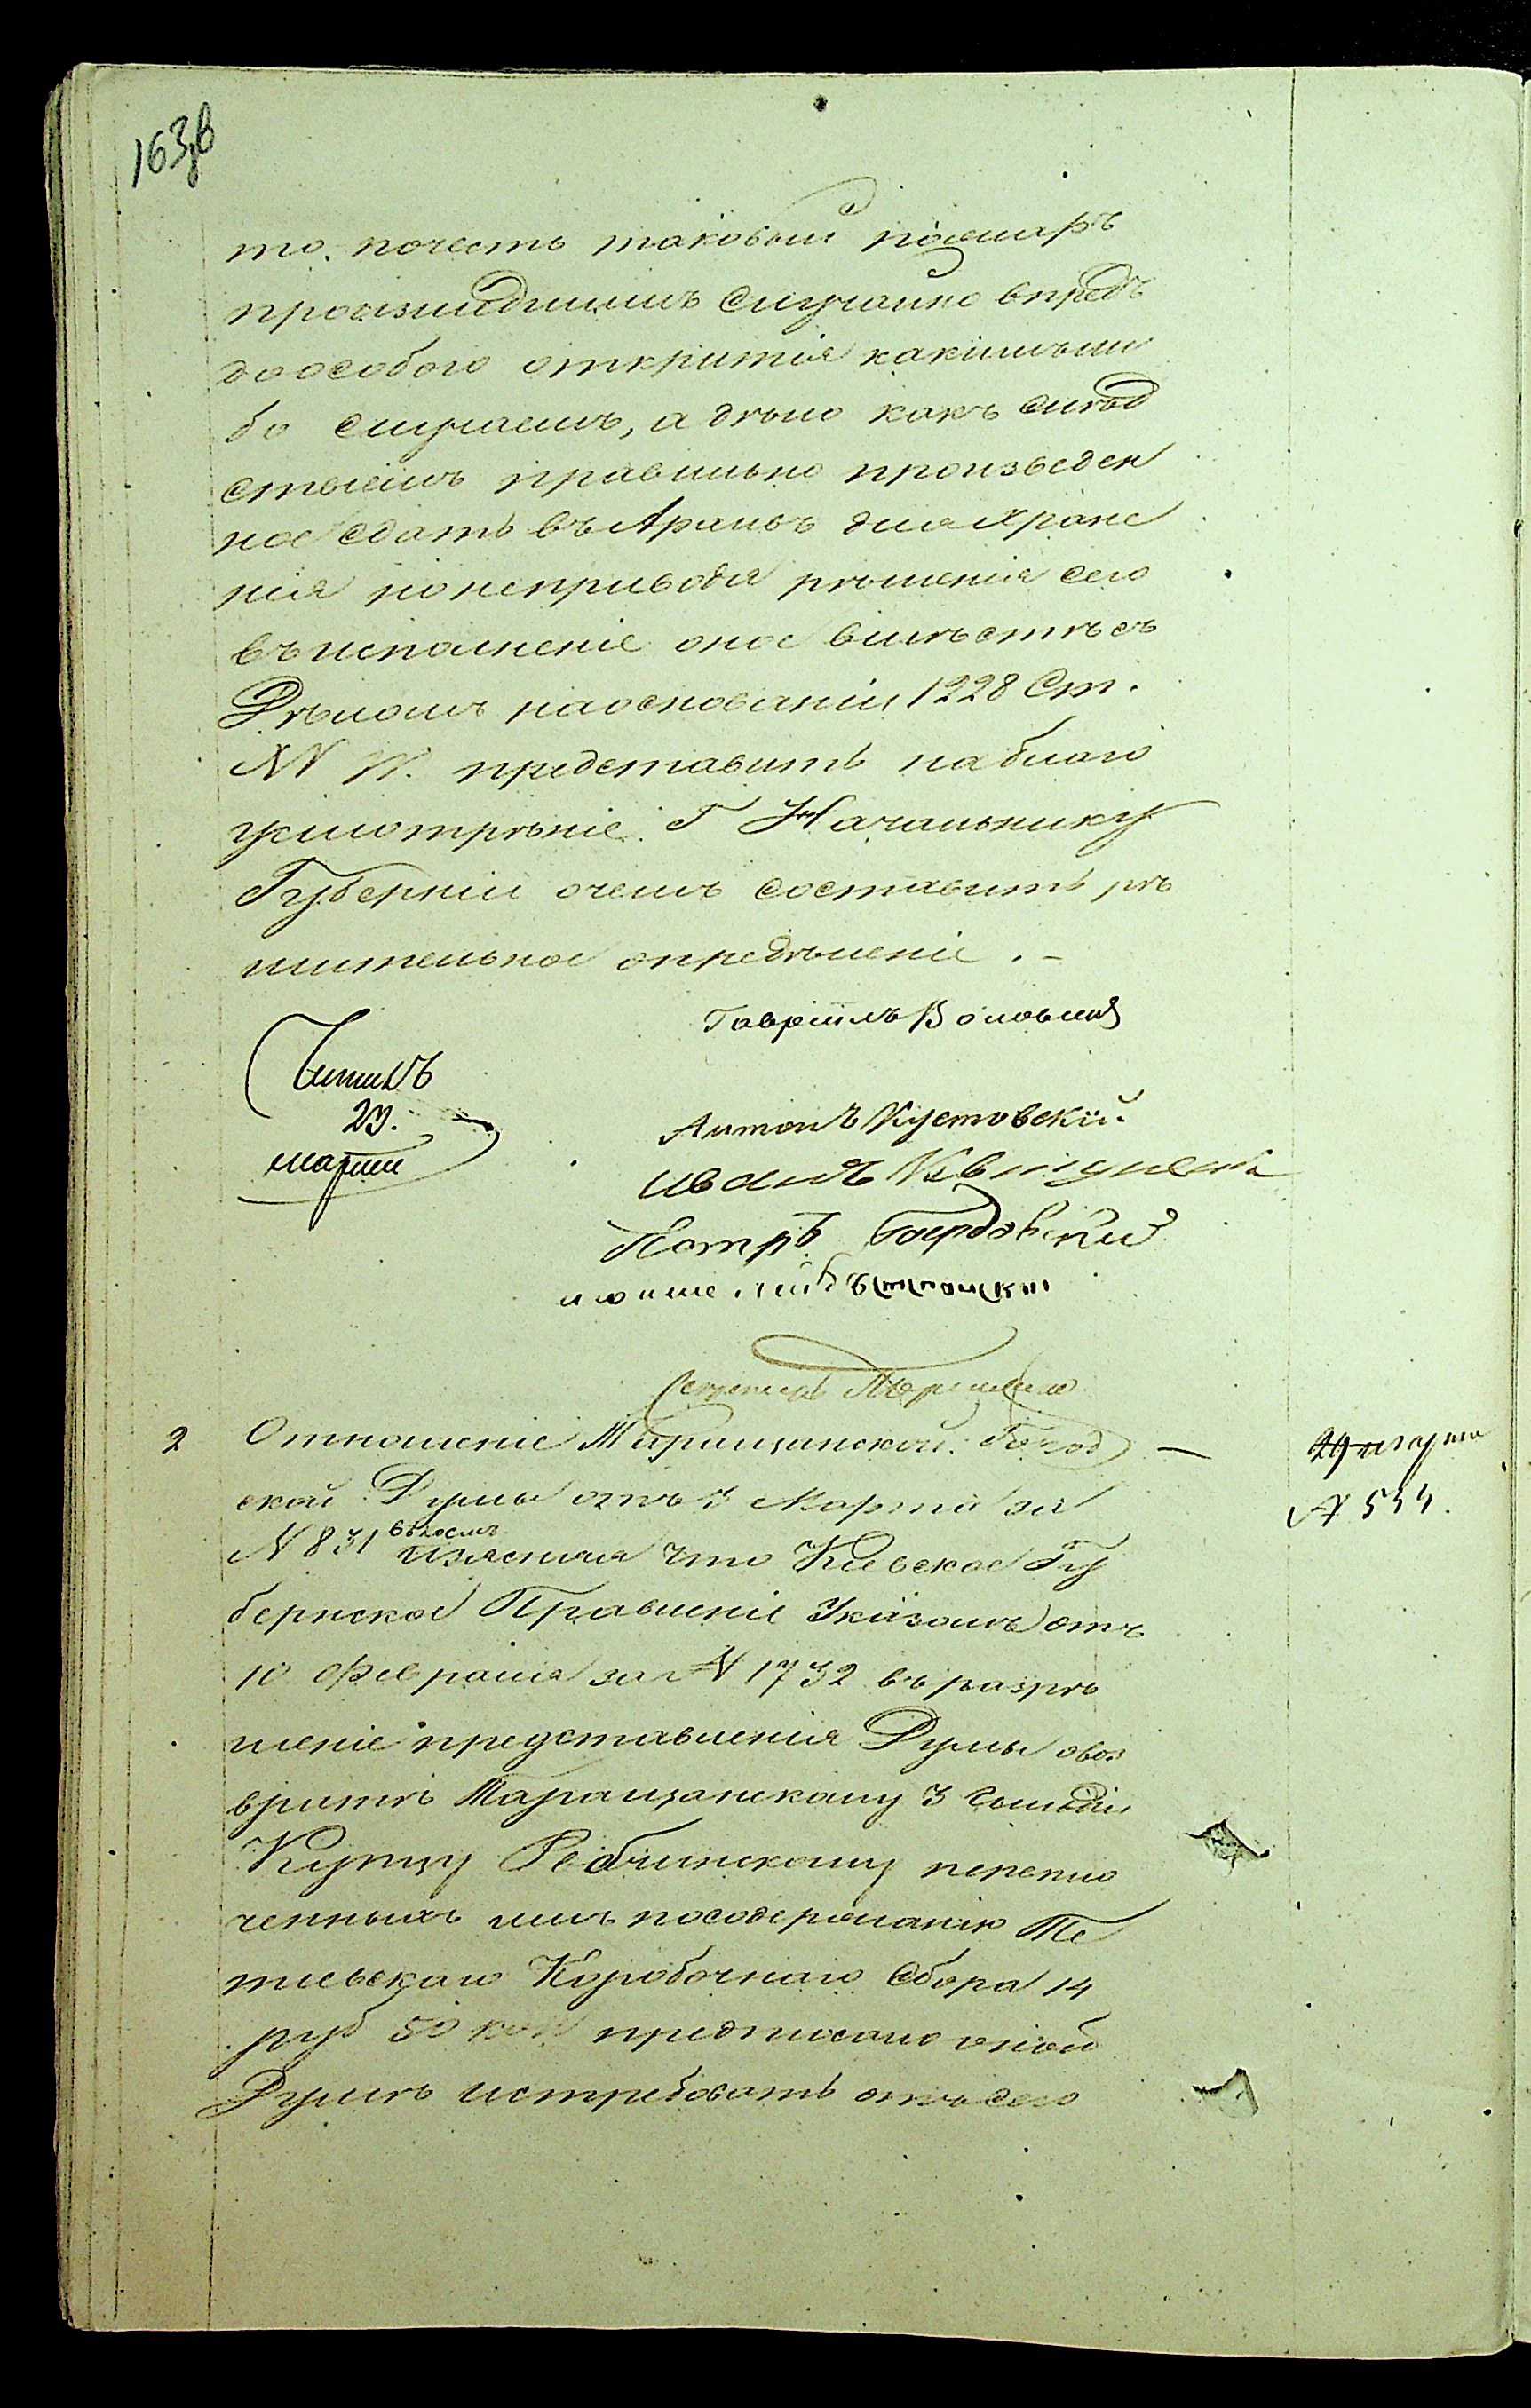 163 зв
то почесть таковый пожаръ
произшедшимъ случайно впредъ
до особого открытія какимъ ли
бо случаемъ, а дѣло какъ слѣд
ствіемъ правильно произведен
ное сдать въ Архивъ для хране
нія но неприводя рѣшенія сего
въ исполненіе оное вмѣстѣ съ
Дѣломъ на основаніи 1228 Ст.
представить на благо
усмотрѣніе Г Началънику
Губерніи о чемъ составить рѣ
шительное опредѣленіе. -
Гавріилъ
Читалъ
23.
марта
Антонъ Кустовскій.
Иванъ
Петръ
Секретарь
2 Отношеніе Таращанской Город —
29 марта
ской Думы отъ 5 Марта за
№ 544.
№ 831 въ коемъ изъясняя что Кіевское Гу
бернское Правленіе Указомъ отъ
10 Февраля за № 1732 въ разрѣ
шеніе представленія Думы о воз
вратѣ Таращанскому 3 Гильдіи
Купцу перепло
ченныхъ имъ по содержанію Те
тіевскаго Коробочнаго Сбора 14
руб 50 коп предписало оной
Думѣ истребовать отъ сего